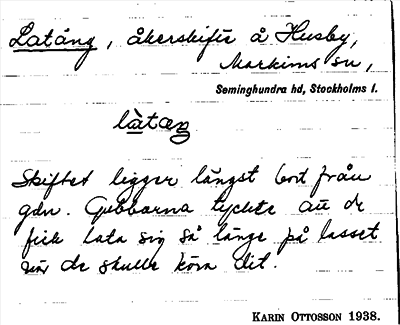 Latäng, åkerskifte å Husby,
Markims sn,
Seminghundra hd, Stockholms l.
làtæŋ
Skiftet ligger längst bort från
gdn. Gubbarna tyckte att de
fick lata sig så länge på lasset
när de skulle köra dit.
KARIN OTTOSSON 1938.